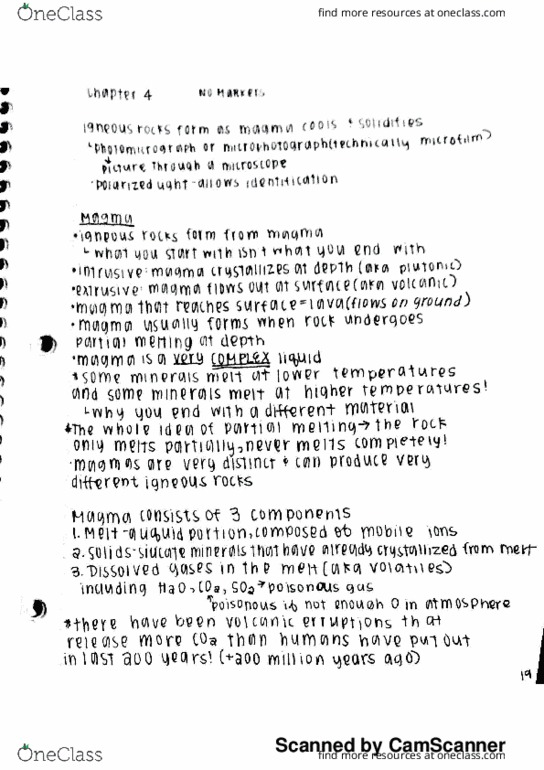 OneClass
find more resources at oneclass.com
Chapter 4 NO MARKERS
igneous rocks form as magma cools + solidifies
photomicrograph or microphotograph (technically microfilm)
picture through a microscope
·polarized light-allows identification
Magma
•igneous rocks form from magma
what you start with isn't what you end with
•intrusive: magma crystallizes at depth (aka plutonic)
•extrusive: magma flows out at surface (aka volcanic)
•magma that reaches surface = lava (flows on ground)
•magma usually forms when rock undergoes
partial melting at depth
•magma is a very COMPLEX liquid
*some minerals melt at lower temperatures
and some minerals melt at higher temperatures!
why you end with a different material
*The whole idea of partial melting → the rock
only melts partially, never melts completely!
·magmas are very distinct + can produce very
different igneous rocks
Magma consists of 3 components
1. Melt-a liquid portion, composed of mobile ions
2. Solids-silicate minerals that have already crystallized from melt
3. Dissolved gases in the melt (aka volatiles)
including H2O, CO2, SO2 → poisonous gas
poisonous if not enough O in atmosphere
*there have been volcanic erruptions that
release more CO2 than humans have put out
in last 200 years! (+200 million years ago)
19
Scanned by CamScanner
OneClass
find more resources at oneclass.com